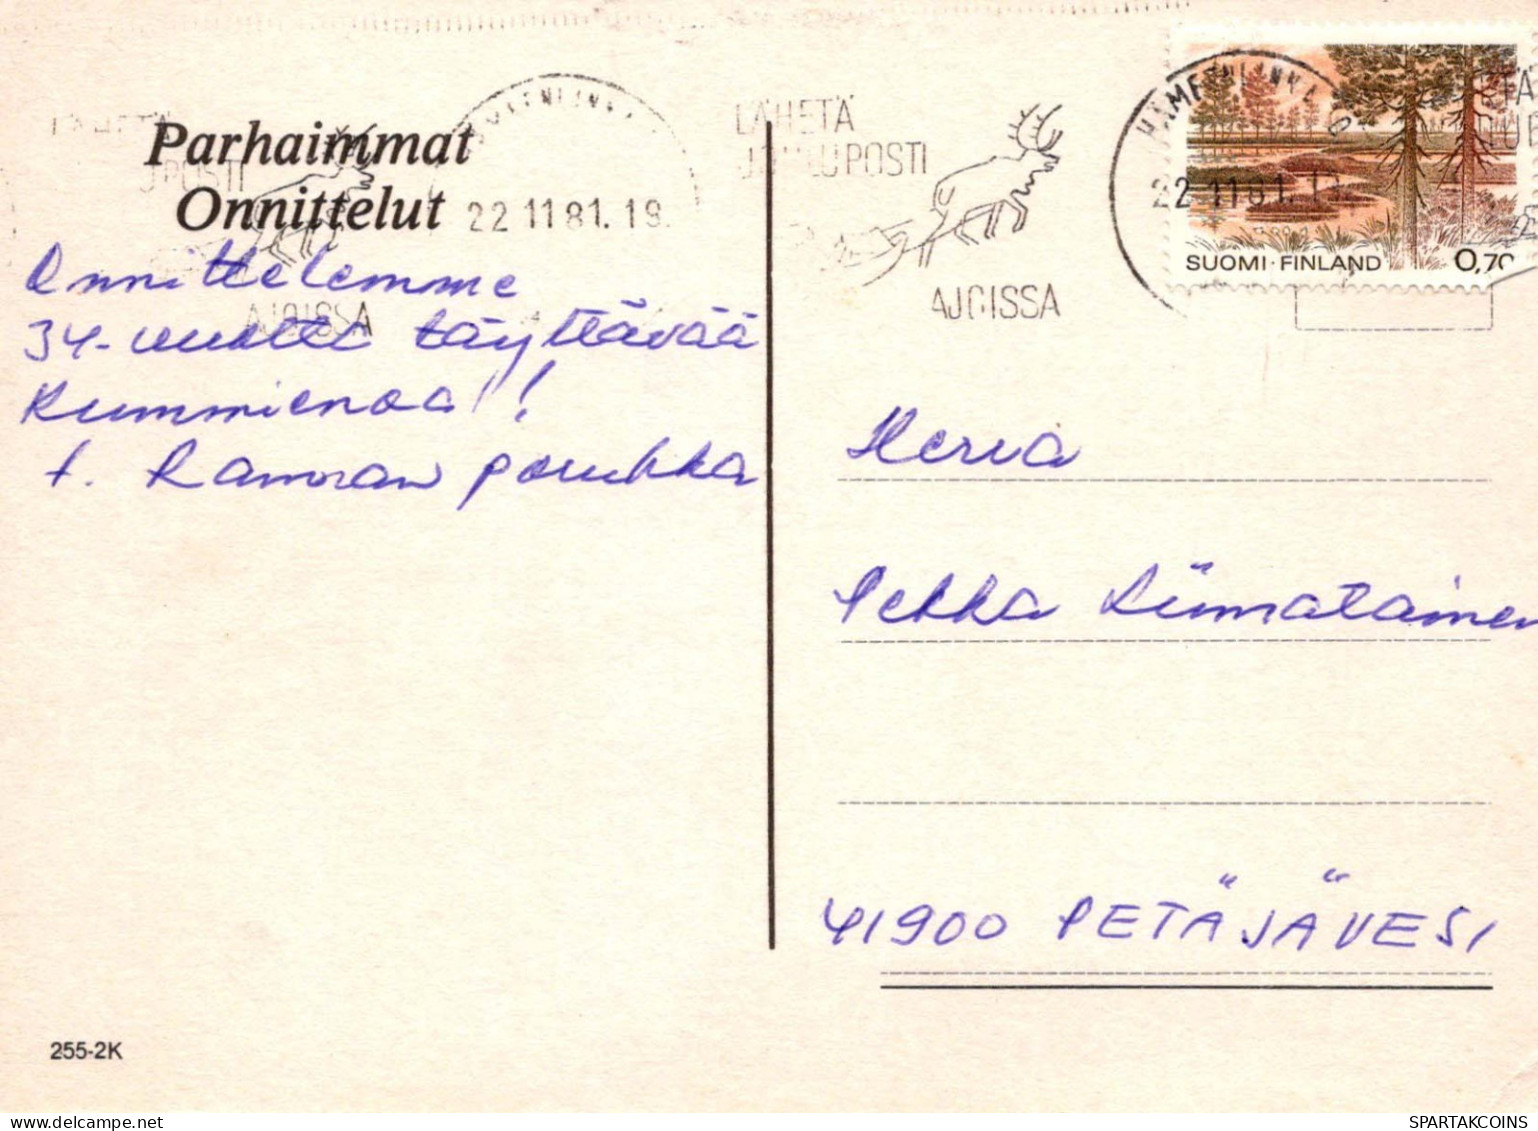 Parhaimmat
Onnittelut
LÄHETÄ
JOULUPOSTI
AJOISSA
HÄMEENLINNA
22 11 81. 19
SUOMI · FINLAND 0,70
Onnittelemme
34-vuotta täyttävää
Kummienoa!
t. Ramoran porukka
Herra
Pekka Liimatainen
41900 PETÄJÄVESI
255-2K
SPARTAKCOINS